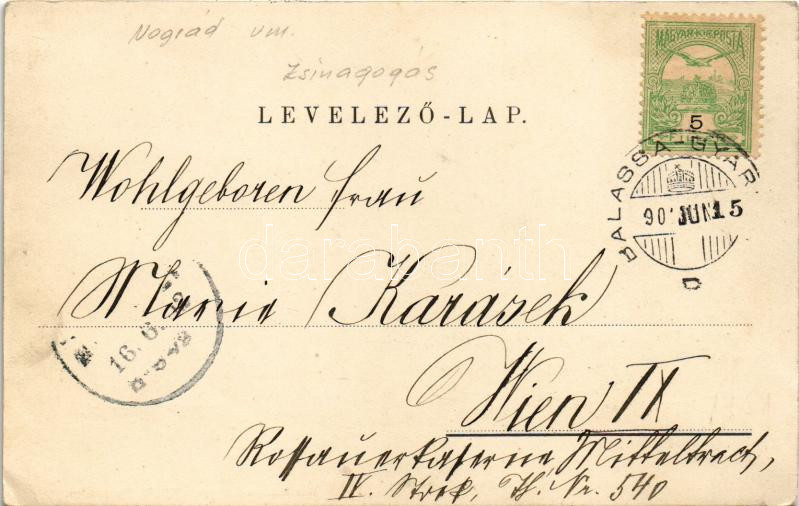 Nográd vm.
Zsinagogás
LEVELEZŐ-LAP.
MAGYAR KIR. POSTA
5
BALASSA-GYAR
90 JUN 15
D
Wohlgeboren Frau
darabanth
Marie Karásek
16. 6.
Wien IX
Rossauerkaserne Mitteltract,
IV. Stock, Th. Nr. 540